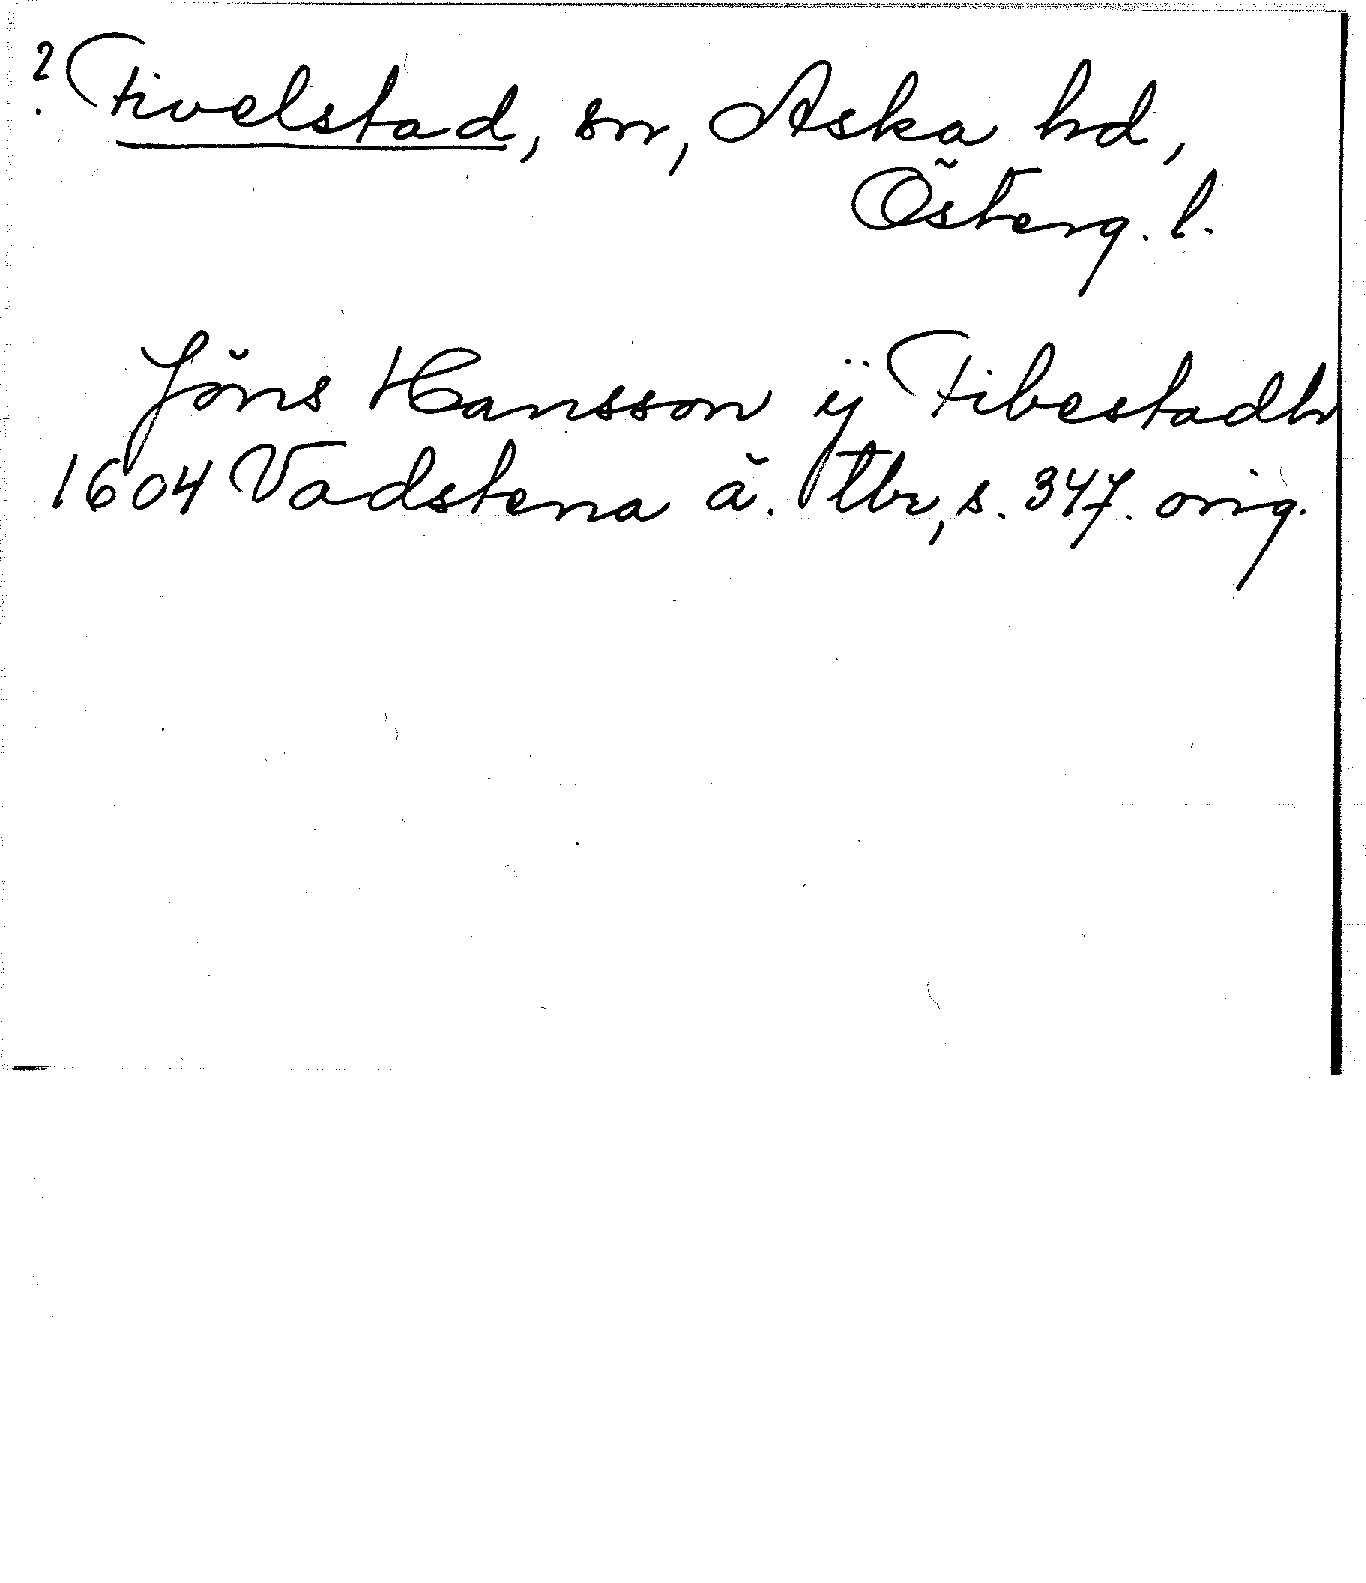 ? Fivelstad, sn, Aska hd,
Österg. l.
Jöns Hansson ij Fibestadh
1604 Vadstena ä. tbr, s. 347. orig.